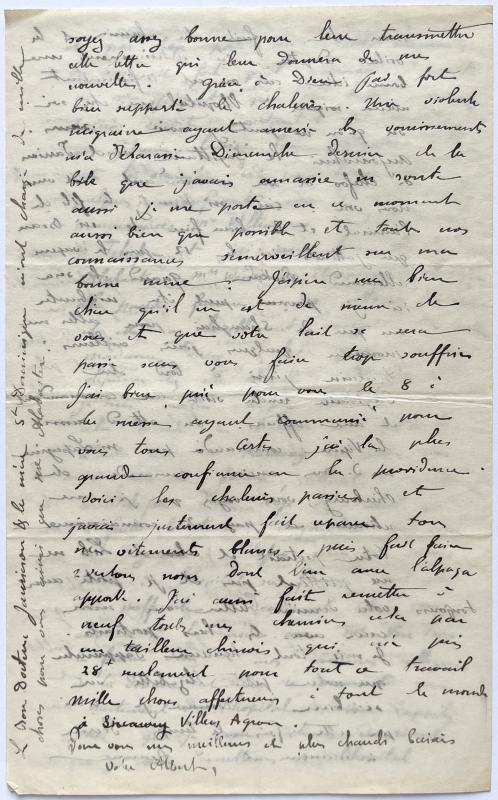 soyez assez bonne pour leur transmettre
cette lettre qui leur donnera de mes
nouvelles. Grâce à Dieu j'ai fort
bien supporté les chaleurs. Une violente
migraine ayant amené des vomissements
m'a débarassé Dimanche dernier de la
bile que j'avais amassée en route
aussi je me porte en ce moment
aussi bien que possible et toutes nos
connaissances s'émerveillent sur ma
bonne mine. J'espère ma bien
chère qu'il en est de même de
vous et que votre lait se sera
passé sans vous faire trop souffrir
J'ai bien prié pour vous le 8 à
la messe, ayant communié pour
vous tous certes j'ai la plus
grande confiance en la providence.
Voici les chaleurs passées et
j'avais justement fait réparer tous
mes vêtements blancs, puis fait faire
2 vestons noirs dont l'un avec l'alpaga
apporté. J'ai aussi fait remettre à
neuf toutes mes chemises cela par
un tailleur chinois qui m'a pris
28 seulement pour tout ce travail
mille choses affectueuses à tout le monde
à Villers Agron.
Pour vous mes meilleurs et plus chauds baisers
Votre Albert,
Le bon docteur et la mère St Dominique m'ont chargé de mille
choses pour vous ainsi que me